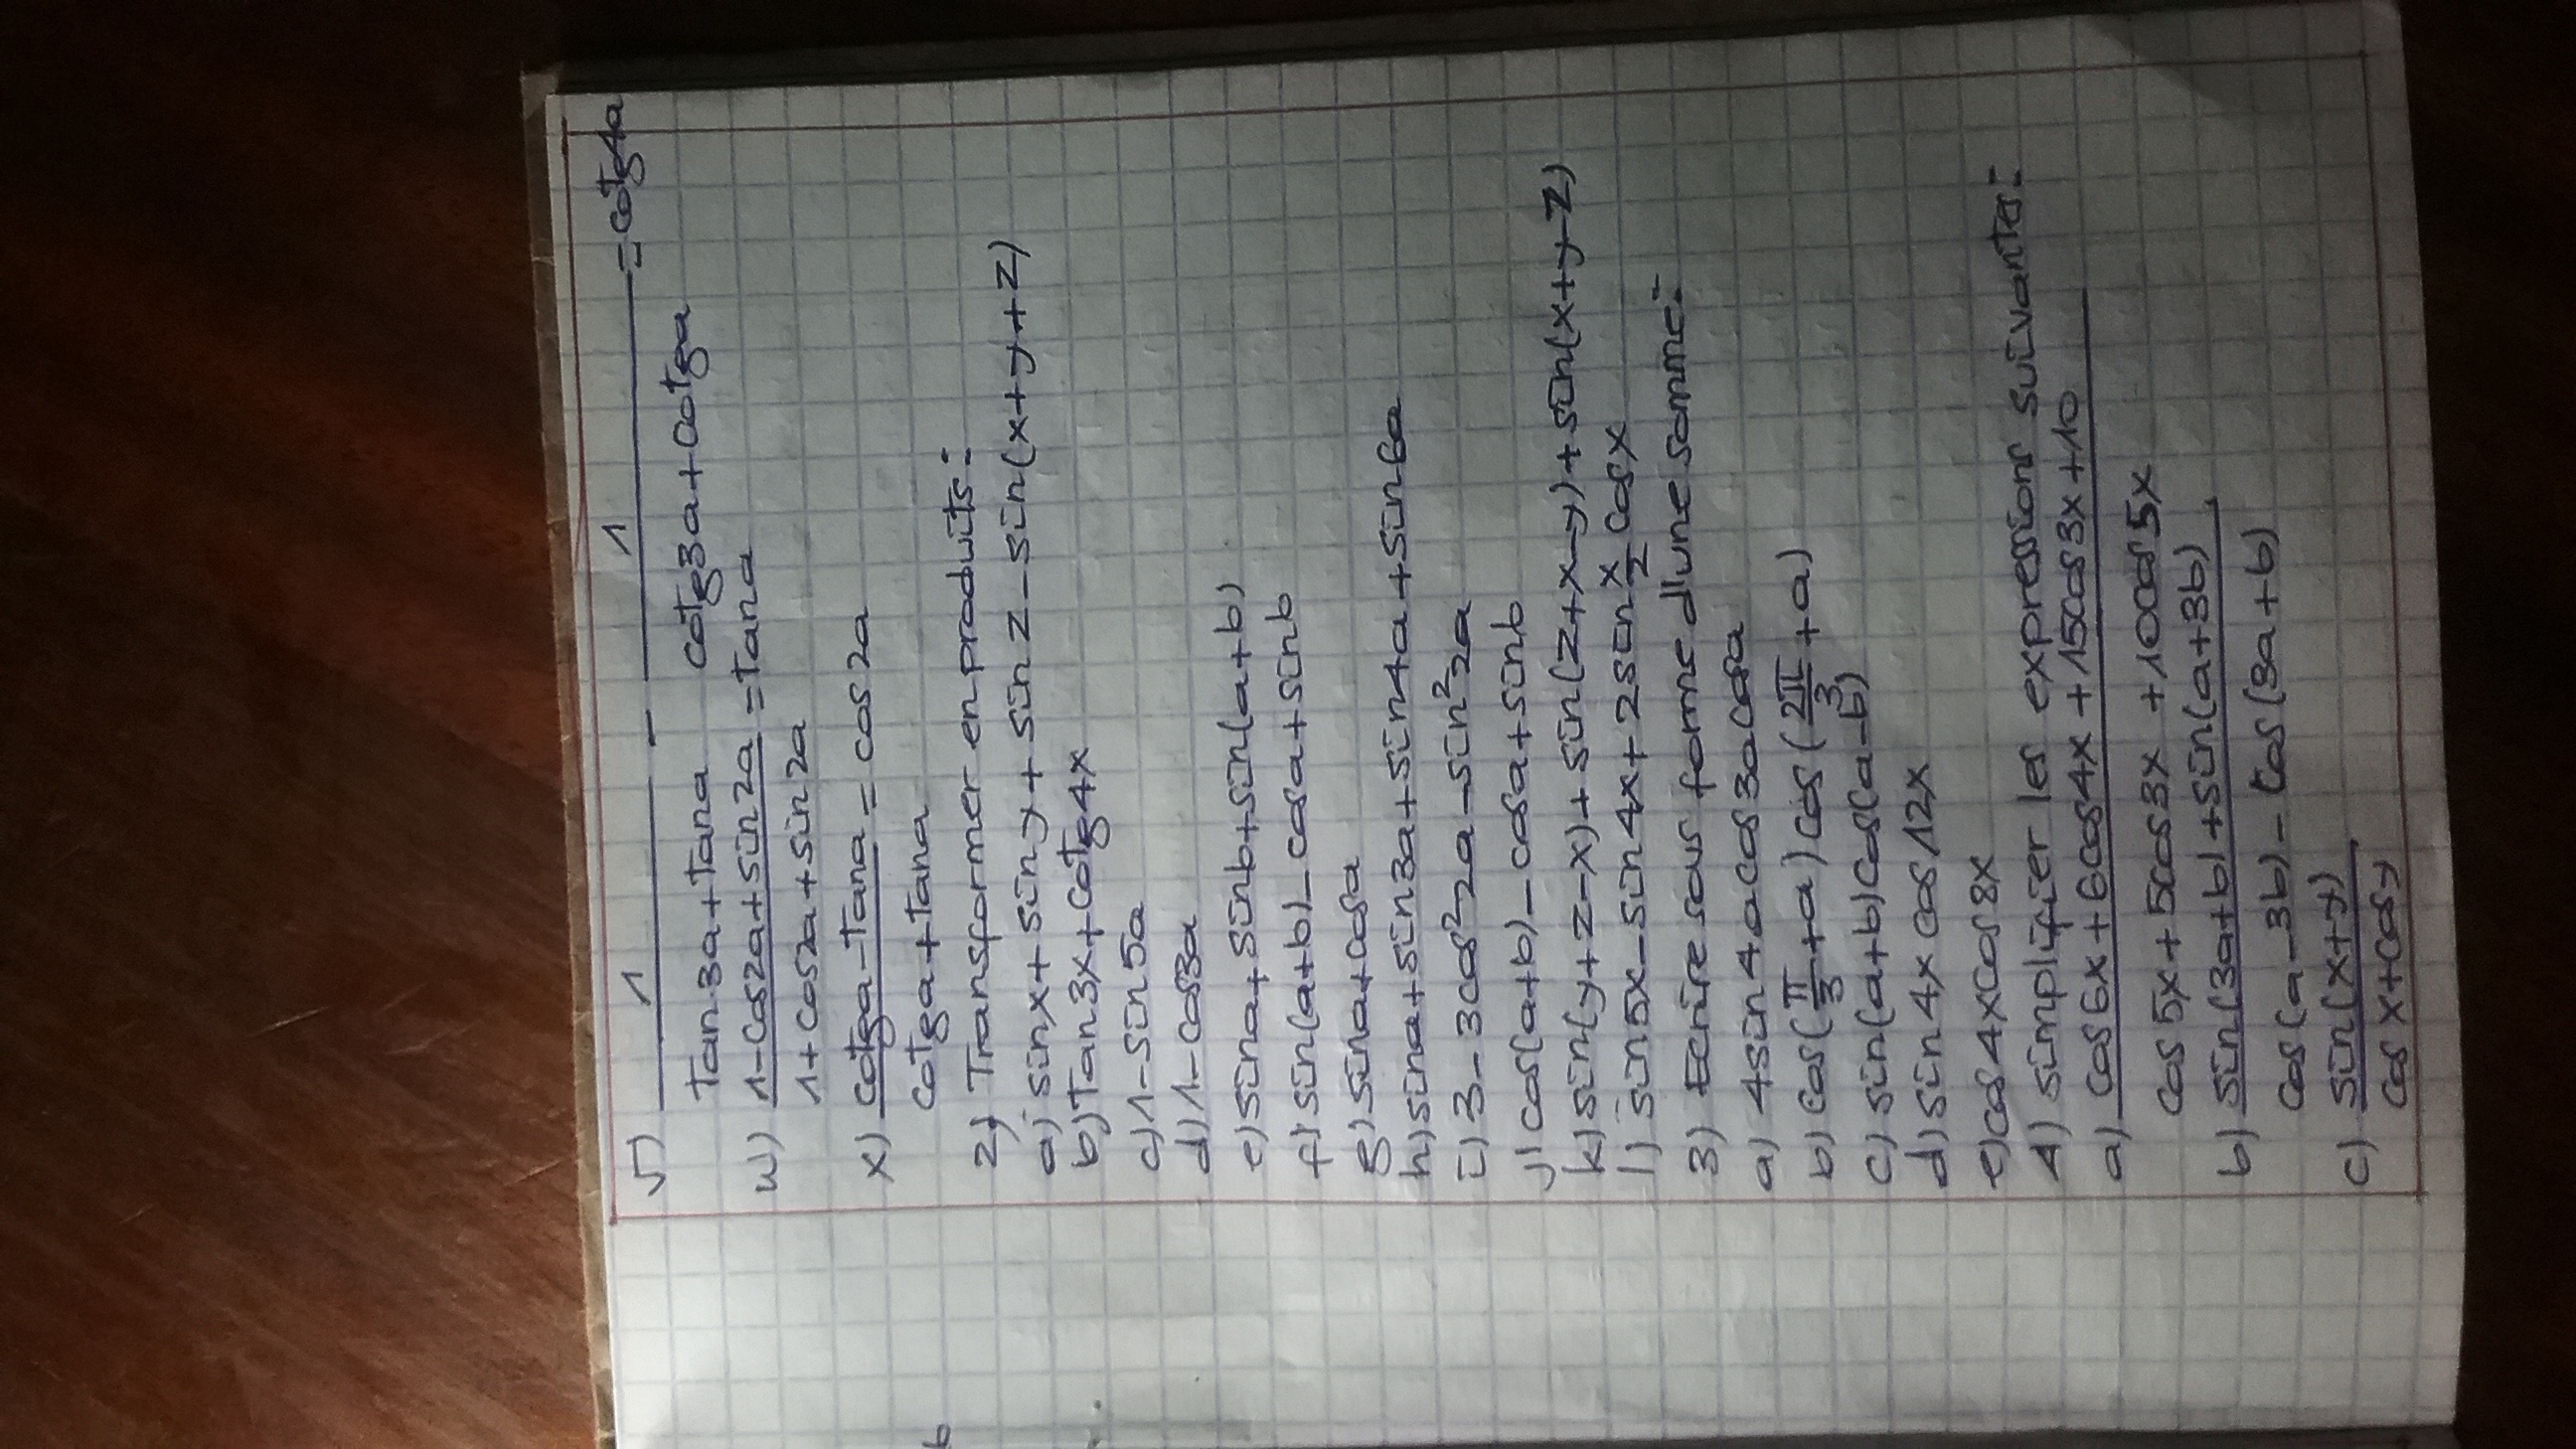 v) 1/(tan3a+tana) - 1/(cotg3a+cotga) = cotg4a
w) (1-cos2a+sin2a)/(1+cos2a+sin2a) = tana
x) (cotga-tana)/(cotga+tana) = cos2a
2) Transformer en produits:
a) sinx+siny+sinz-sin(x+y+z)
b) Tan3x+cotg4x
c) 1-sin5a
d) 1-cos3a
e) sina+sinb+sin(a+b)
f) sin(a+b)-cosa+sinb
g) sina+cosa
h) sina+sin3a+sin4a+sin6a
i) 3-3cos²2a-sin²2a
j) cos(a+b)-cosa+sinb
k) sin(y+z-x)+sin(z+x-y)+sin(x+y-z)
l) sin5x-sin4x+2sin x/2 cosx
3) Ecrire sous forme d'une somme:
a) 4sin4acos3acosa
b) cos(π/3+a)cos(2π/3+a)
c) sin(a+b)cos(a-b)
d) sin4xcos12x
e) cos4xcos8x
4) simplifier les expressions suivantes:
a) (cos6x+6cos4x+15cos3x+10)/(cos5x+5cos3x+10cos5x)
b) (sin(3a+b)+sin(a+3b))/(cos(a-3b)-cos(3a+b))
c) (sin(x+y))/(cosx+cosy)
b